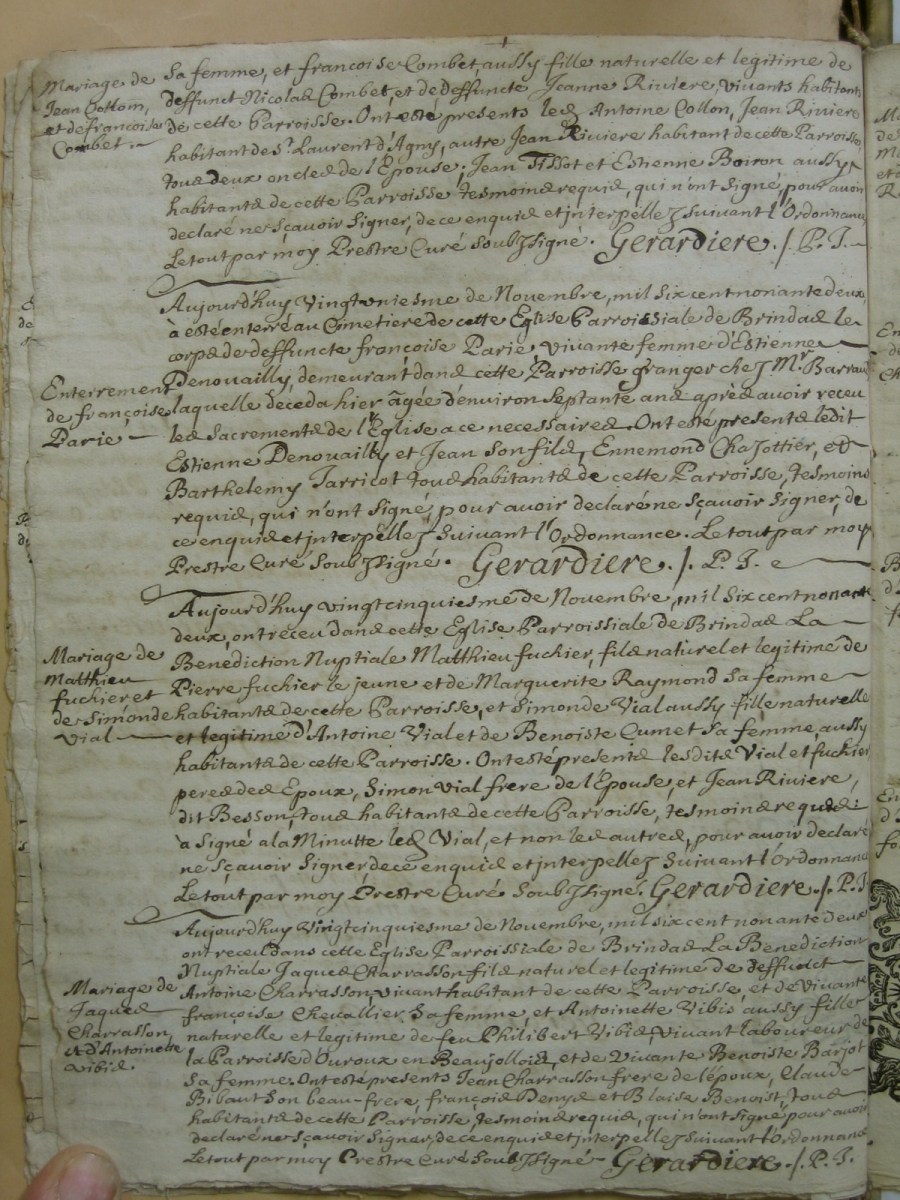 Mariage de
Jean Collom,
et de francoise
Combet.
Sa femme, et francoise Combet, aussy fille naturelle et legitime de
deffunct Nicolas Combet, et de deffuncte Jeanne Riviere, vivants habitants
de cette Parroisse. Ont esté presents led. Antoine Collon, Jean Riviere
habitant de St. Laurent d'Agny, autre Jean Riviere habitant de cette Parroisse,
tous deux oncles de l'Epouse, Jean Tissot et Estienne Boiron aussy
habitants de cette Parroisse tesmoins requis, qui n'ont signé, pour avoir
declaré ne sçavoir signer, de ce enquis et interpellez suivant l'Ordonnance
Le tout par moy Prestre Curé soubzsigné. Gerardiere ./. P. J.
Aujourd'huy vingtuniesme de Novembre, mil six cent nonante deux,
à esté enterré au Cimetiere de cette Eglise Parroissiale de Brindas le
corps de deffuncte françoise Parie, vivante femme d'Estienne
Enterrement
de françoise
Parie
Denouailly, demeurant dans cette Parroisse granger chez Mr. Barrau
laquelle deceda hier âgée d'environ septante ans après avoir receu
les sacrements de l'Eglise a ce necessaires. Ont esté presents ledit
Estienne Denouailly et Jean son fils, Ennemond Chazottier, et
Barthelemy Tarricot tous habitants de cette Parroisse, tesmoins
requis, qui n'ont signé, pour avoir declaré ne sçavoir signer, de
ce enquis et interpellez suivant l'Ordonnance. Le tout par moy
Prestre Curé soubzsigné. Gerardiere ./. P. J.
Aujourd'huy vingtcinquiesme de Novembre, mil six cent nonante
deux, ont receu dans cette Eglise Parroissiale de Brindas La
Mariage de
Matthieu
fuchier et
de Simonde
Vial
Benediction Nuptiale Matthieu fuchier, fils naturel et legitime de
Pierre fuchier le jeune et de Marguerite Raymond sa femme
habitants de cette Parroisse, et Simonde Vial aussy fille naturelle
et legitime d'Antoine Vial et de Benoiste Cumet sa femme, aussy
habitants de cette Parroisse. Ont esté presents lesdits Vial et fuchier
peres des Epoux, Simon Vial frere de l'Epouse, et Jean Riviere,
dit Besson, tous habitants de cette Parroisse, tesmoins requis:
à signé a la Minutte led. Vial, et non les autres, pour avoir declaré
ne sçavoir signer, de ce enquis et interpellez suivant l'Ordonnance
Le tout par moy Prestre Curé soubzsigné. Gerardiere ./. P. J
Aujourd'huy vingtcinquiesme de Novembre, mil six cent nonante deux
ont receu dans cette Eglise Parroissiale de Brindas La Benediction
Mariage de
Jaques
Charrasson,
et d'Antoinette
Vibis.
Nuptiale Jaques Charrasson fils naturel et legitime de deffunct
Antoine Charrasson, vivant habitant de cette Parroisse, et de vivante
françoise Chevallier sa femme, et Antoinette Vibis aussy fille
naturelle et legitime de feu Philibert Vibis, vivant laboureur de
la Parroisse d'Ouroux en Beaujollois, et de vivante Benoiste Barjot
sa femme. Ont esté presents Jean Charrasson frere de l'époux, Claude
Ribaut son beau-frere, françois Denys et Blaise Benoist, tous
habitants de cette Parroisse, tesmoins requis, qui n'ont signé pour avoir
declaré ne sçavoir signer, de ce enquis et interpellez suivant l'Ordonnance
Le tout par moy Prestre Curé soubzsigné Gerardiere ./. P. J.